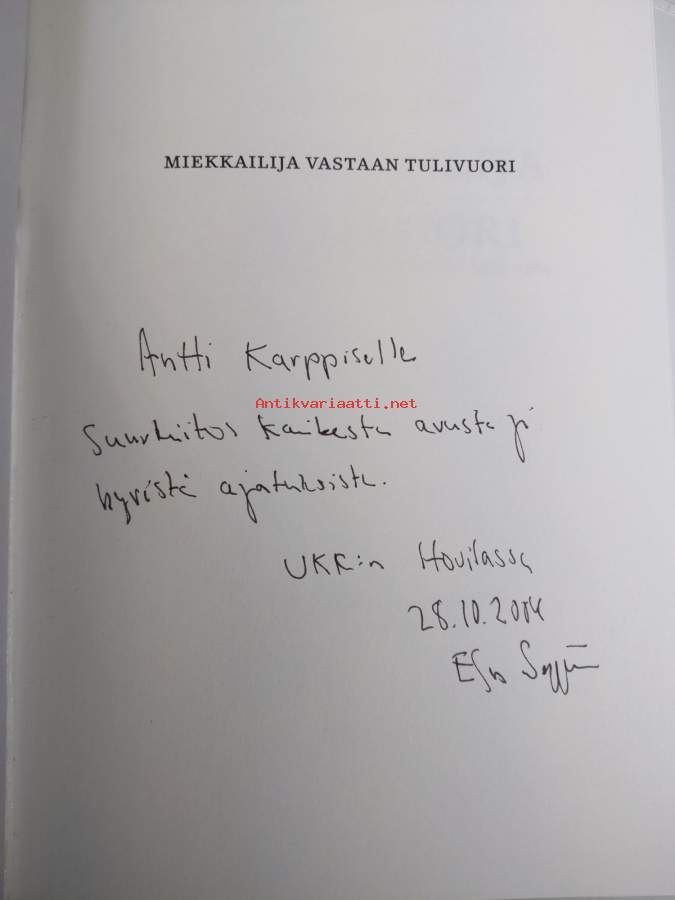 MIEKKAILIJA VASTAAN TULIVUORI
Antti Karppiselle
Antikvariaatti.net
Suurkiitos kaikesta avusta ja
hyvistä ajatuksista.
UKK:n Hovilassa
28.10.2004
Esa Seppänen